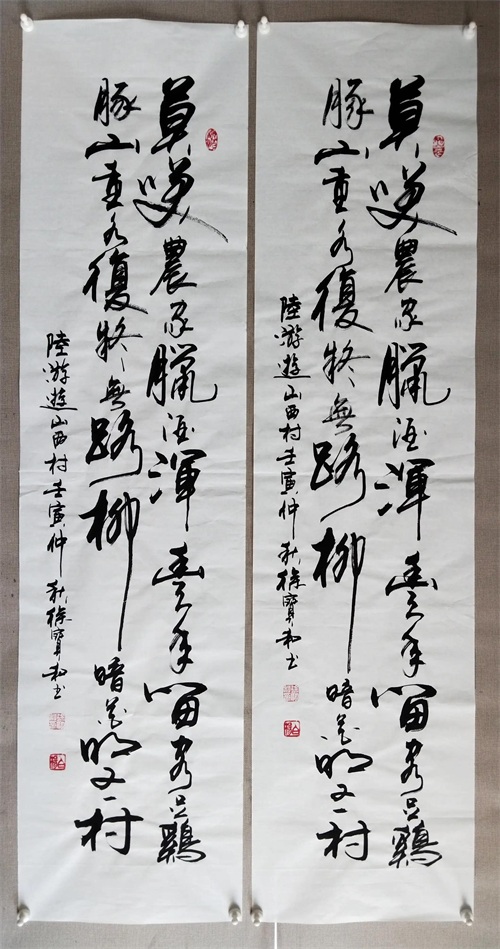 莫咲農家臘酒渾豐年留客足鷄
豚山重水復疑無路柳暗花明又一村
陸游遊山西村壬寅仲秋徐寶書
莫咲農家臘酒渾豐年留客足鷄
豚山重水復疑無路柳暗花明又一村
陸游遊山西村壬寅仲秋徐寶書